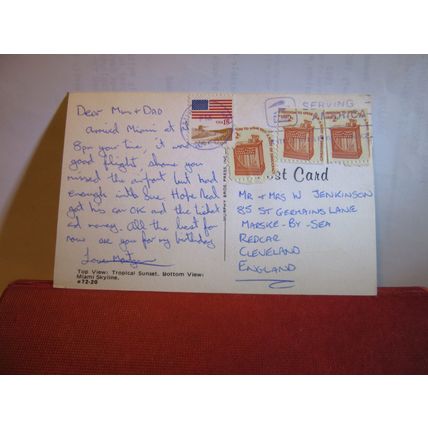 Dear Mum + Dad
arrived Miami at
8pm you time, it was a
good flight, shame you
missed the airport but had
enough into
got his car OK and the ticket
and money. All the best for
now
see you for my birthday
Love Martyn
Top View: Tropical Sunset. Bottom View:
Miami Skyline.
#72-20
USA 18c
SERVING
AMERICA
Post Card
MR + MRS W JENKINSON
85 ST GERMAINS LANE
MARSKE-BY-SEA
REDCAR
CLEVELAND
ENGLAND